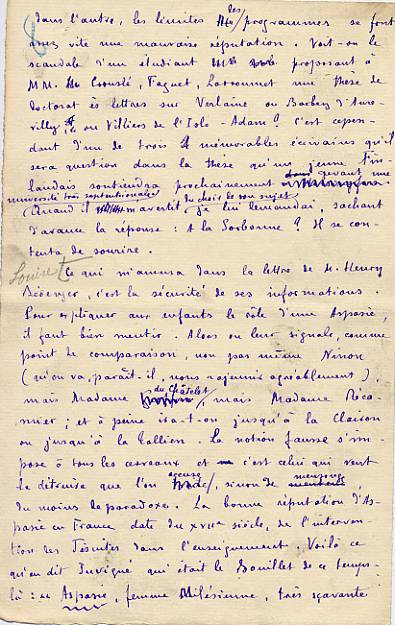 dans l'autre, les limites des programmes se font
assez vite une mauvaise réputation. Voit-on le
scandale d'un étudiant proposant à
MM. Crouslé, Faguet, Larroumet une thèse de
doctorat ès lettres sur Verlaine ou Barbey d'Aure-
villy, ou Villiers de l'Isle-Adam ? C'est cepen-
dant d'un de ces trois mémorables écrivains qu'il
sera question dans la thèse qu'un jeune Fin-
landais soutiendra prochainement devant une
université très septentrionale du choix de son sujet,
Quand il m'avertit je lui demandai, sachant
d'avance la réponse : À la Sorbonne ? Il se con-
tenta de sourire.
Louise
Ce qui m'amusa dans la lettre de M. Henry
Bérenger, c'est la sécurité de ses informations.
Pour expliquer aux enfants le rôle d'une Aspasie,
il faut bien mentir. Alors on leur signale, comme
point de comparaison, non pas même Ninon
(qu'on va, paraît-il, nous rajeunir agréablement),
mais Madame du Châtelet, mais Madame Réca-
mier ; et à peine ira-t-on jusqu'à la Clairon
ou jusqu'à la Tallien. La notion fausse s'im-
pose à tous les cerveaux et c'est celui qui veut
la détruire que l'on accuse, sinon de mensonge,
du moins de paradoxe. La bonne réputation d'As-
pasie en France date du XVIIe siècle, de l'interven-
tion des Jésuites dans l'enseignement. Voilà ce
qu'en dit Juvigné qui était le Bouillet de ce temps-
là : « Aspasie, femme Milésienne, très sçavante